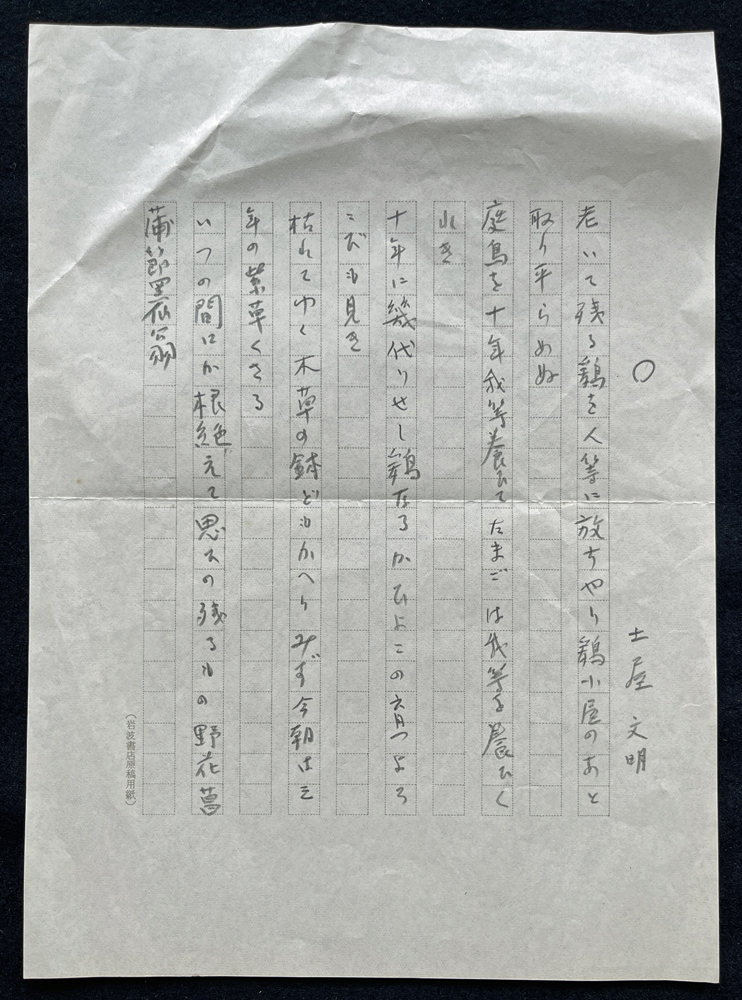 ○
土屋 文明
老いて残る鷄を人等に放ちやり鷄小屋のあと
取り平らめぬ
庭鳥を十年我等養ひてたまごは我等を養ひく
れき
十年に幾代りせし鷄なるかひよこの育つよろ
こびも見き
枯れてゆく木草の鉢どもかへりみず今朝は三
年の紫草くさる
いつの間にか根絶えて思ひの残るもの野花菖
蒲節黒仙翁
(岩波書店原稿用紙)